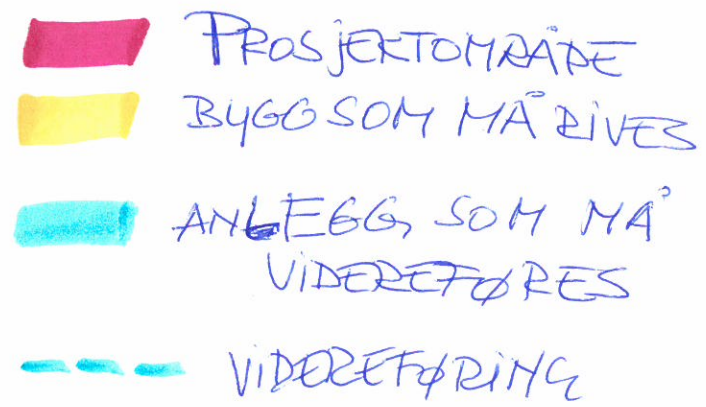 PROSJEKTOMRÅDE
BYGG SOM MÅ RIVES
ANLEGG SOM MÅ
VIDEREFØRES
VIDEREFØRING